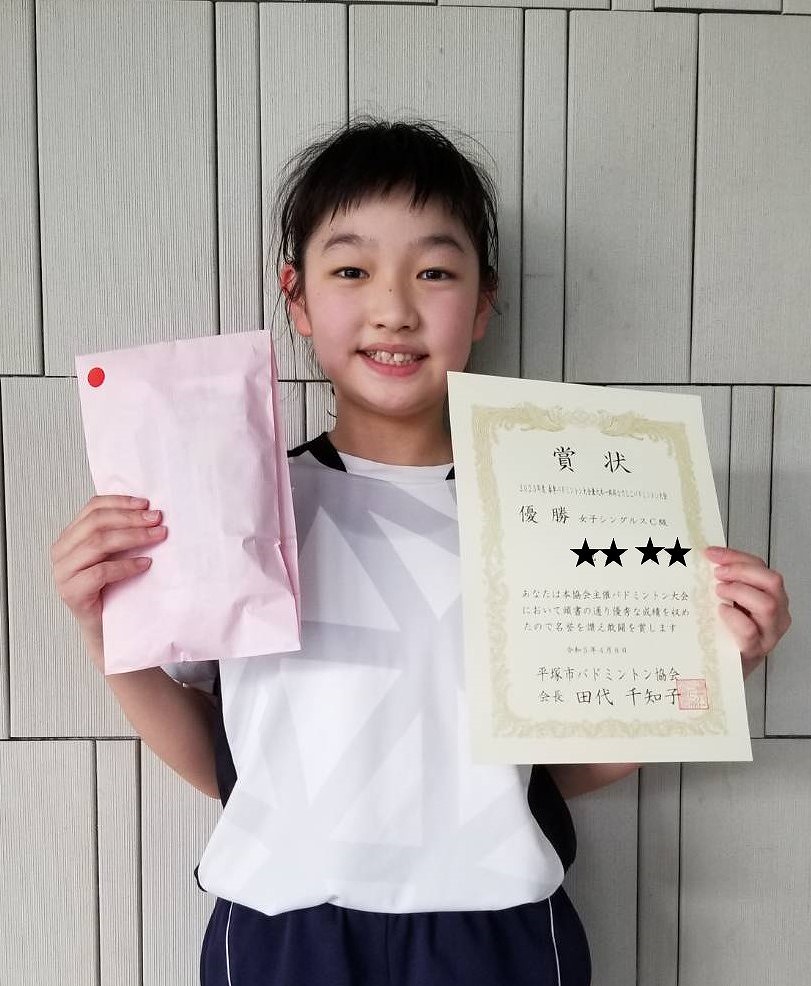 賞状
優勝 女子シングルスC級
★★ ★★
あなたは本協会主催バドミントン大会
において頭書の通り優秀な成績を収め
たので名誉を讃え敢闘を賞します
令和5年4月8日
平塚市バドミントン協会
会長 田代 千知子